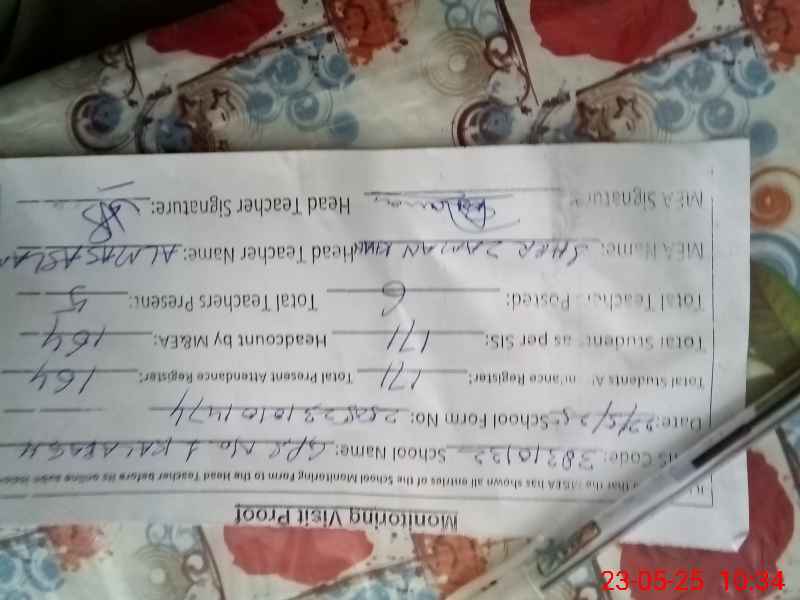 Monitoring Visit Proof
that the MSEA has shown all entries of the School Monitoring Form to the Head Teacher before its online
Code: 38310122 School Name: GPS No. 1 KALABAGH
Date: 23/5/25 School Form No: 2505231010 1474
Total Students Register: 171 Total Present Attendance Register: 164
Total Student as per SIS: 171 Headcount by M&EA: 164
Total Teacher Posted: 6 Total Teachers Present: 5
MEA Name: SHER ZAMAN KHAN Head Teacher Name: ALMAS ASLAM
MEA Signature: Head Teacher Signature:
23-05-25 10:34